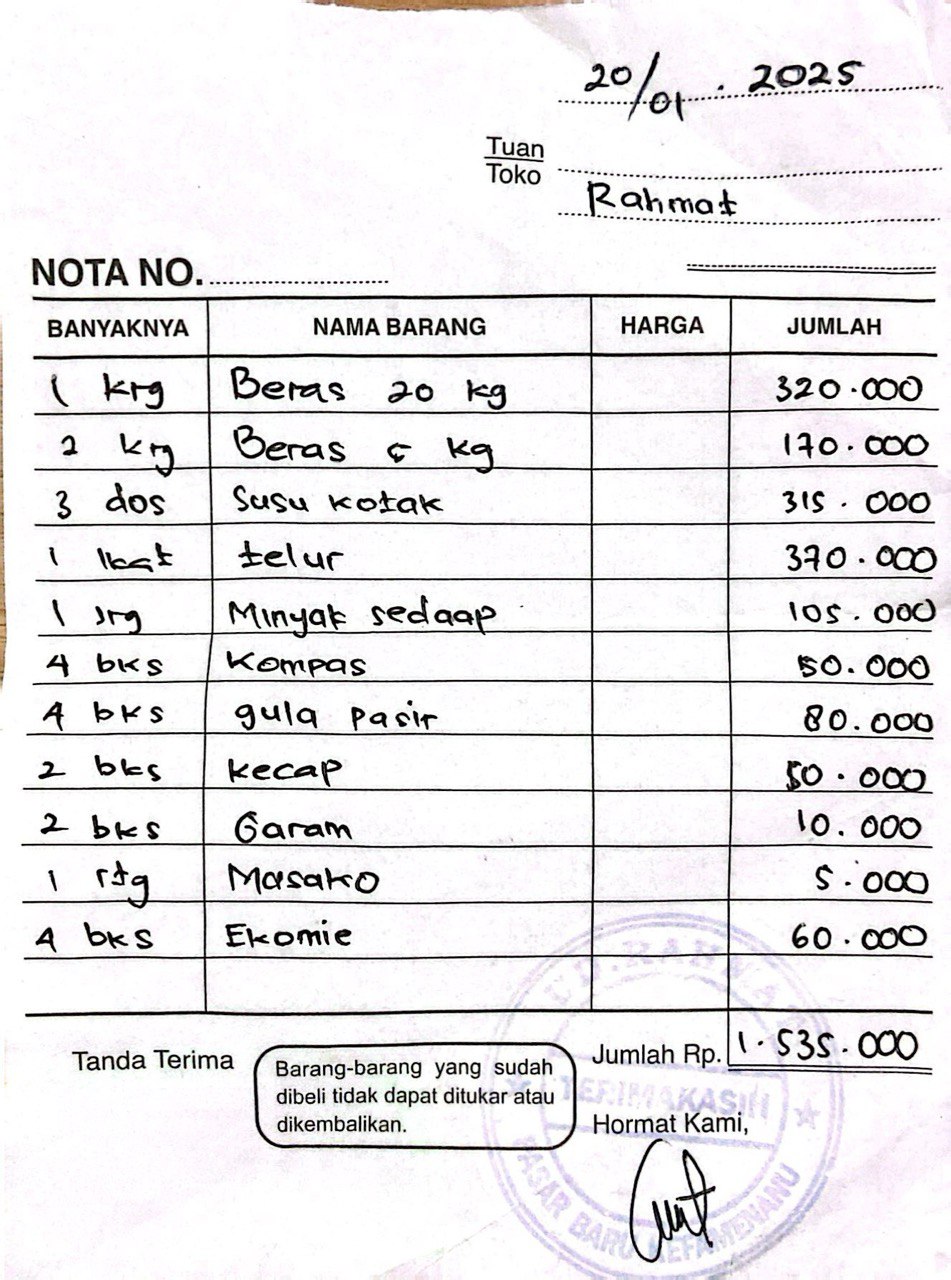 20/01 . 2025
Tuan
Toko
Rahmat
NOTA NO.
BANYAKNYA NAMA BARANG HARGA JUMLAH
1 krg Beras 20 kg 320.000
2 krg Beras 5 kg 170.000
3 dos Susu kotak 315.000
1 Ikat telur 370.000
1 Jrg Minyak sedaap 105.000
4 bks Kompas 50.000
4 bks gula pasir 80.000
2 bks kecap 50.000
2 bks Garam 10.000
1 rtg Masako 5.000
4 bks Ekomie 60.000
Jumlah Rp. 1.535.000
Tanda Terima
Barang-barang yang sudah
dibeli tidak dapat ditukar atau
dikembalikan.
Hormat Kami,
UD.RAHMAT
TERIMAKASIH
PASAR BARU KEFAMENANU